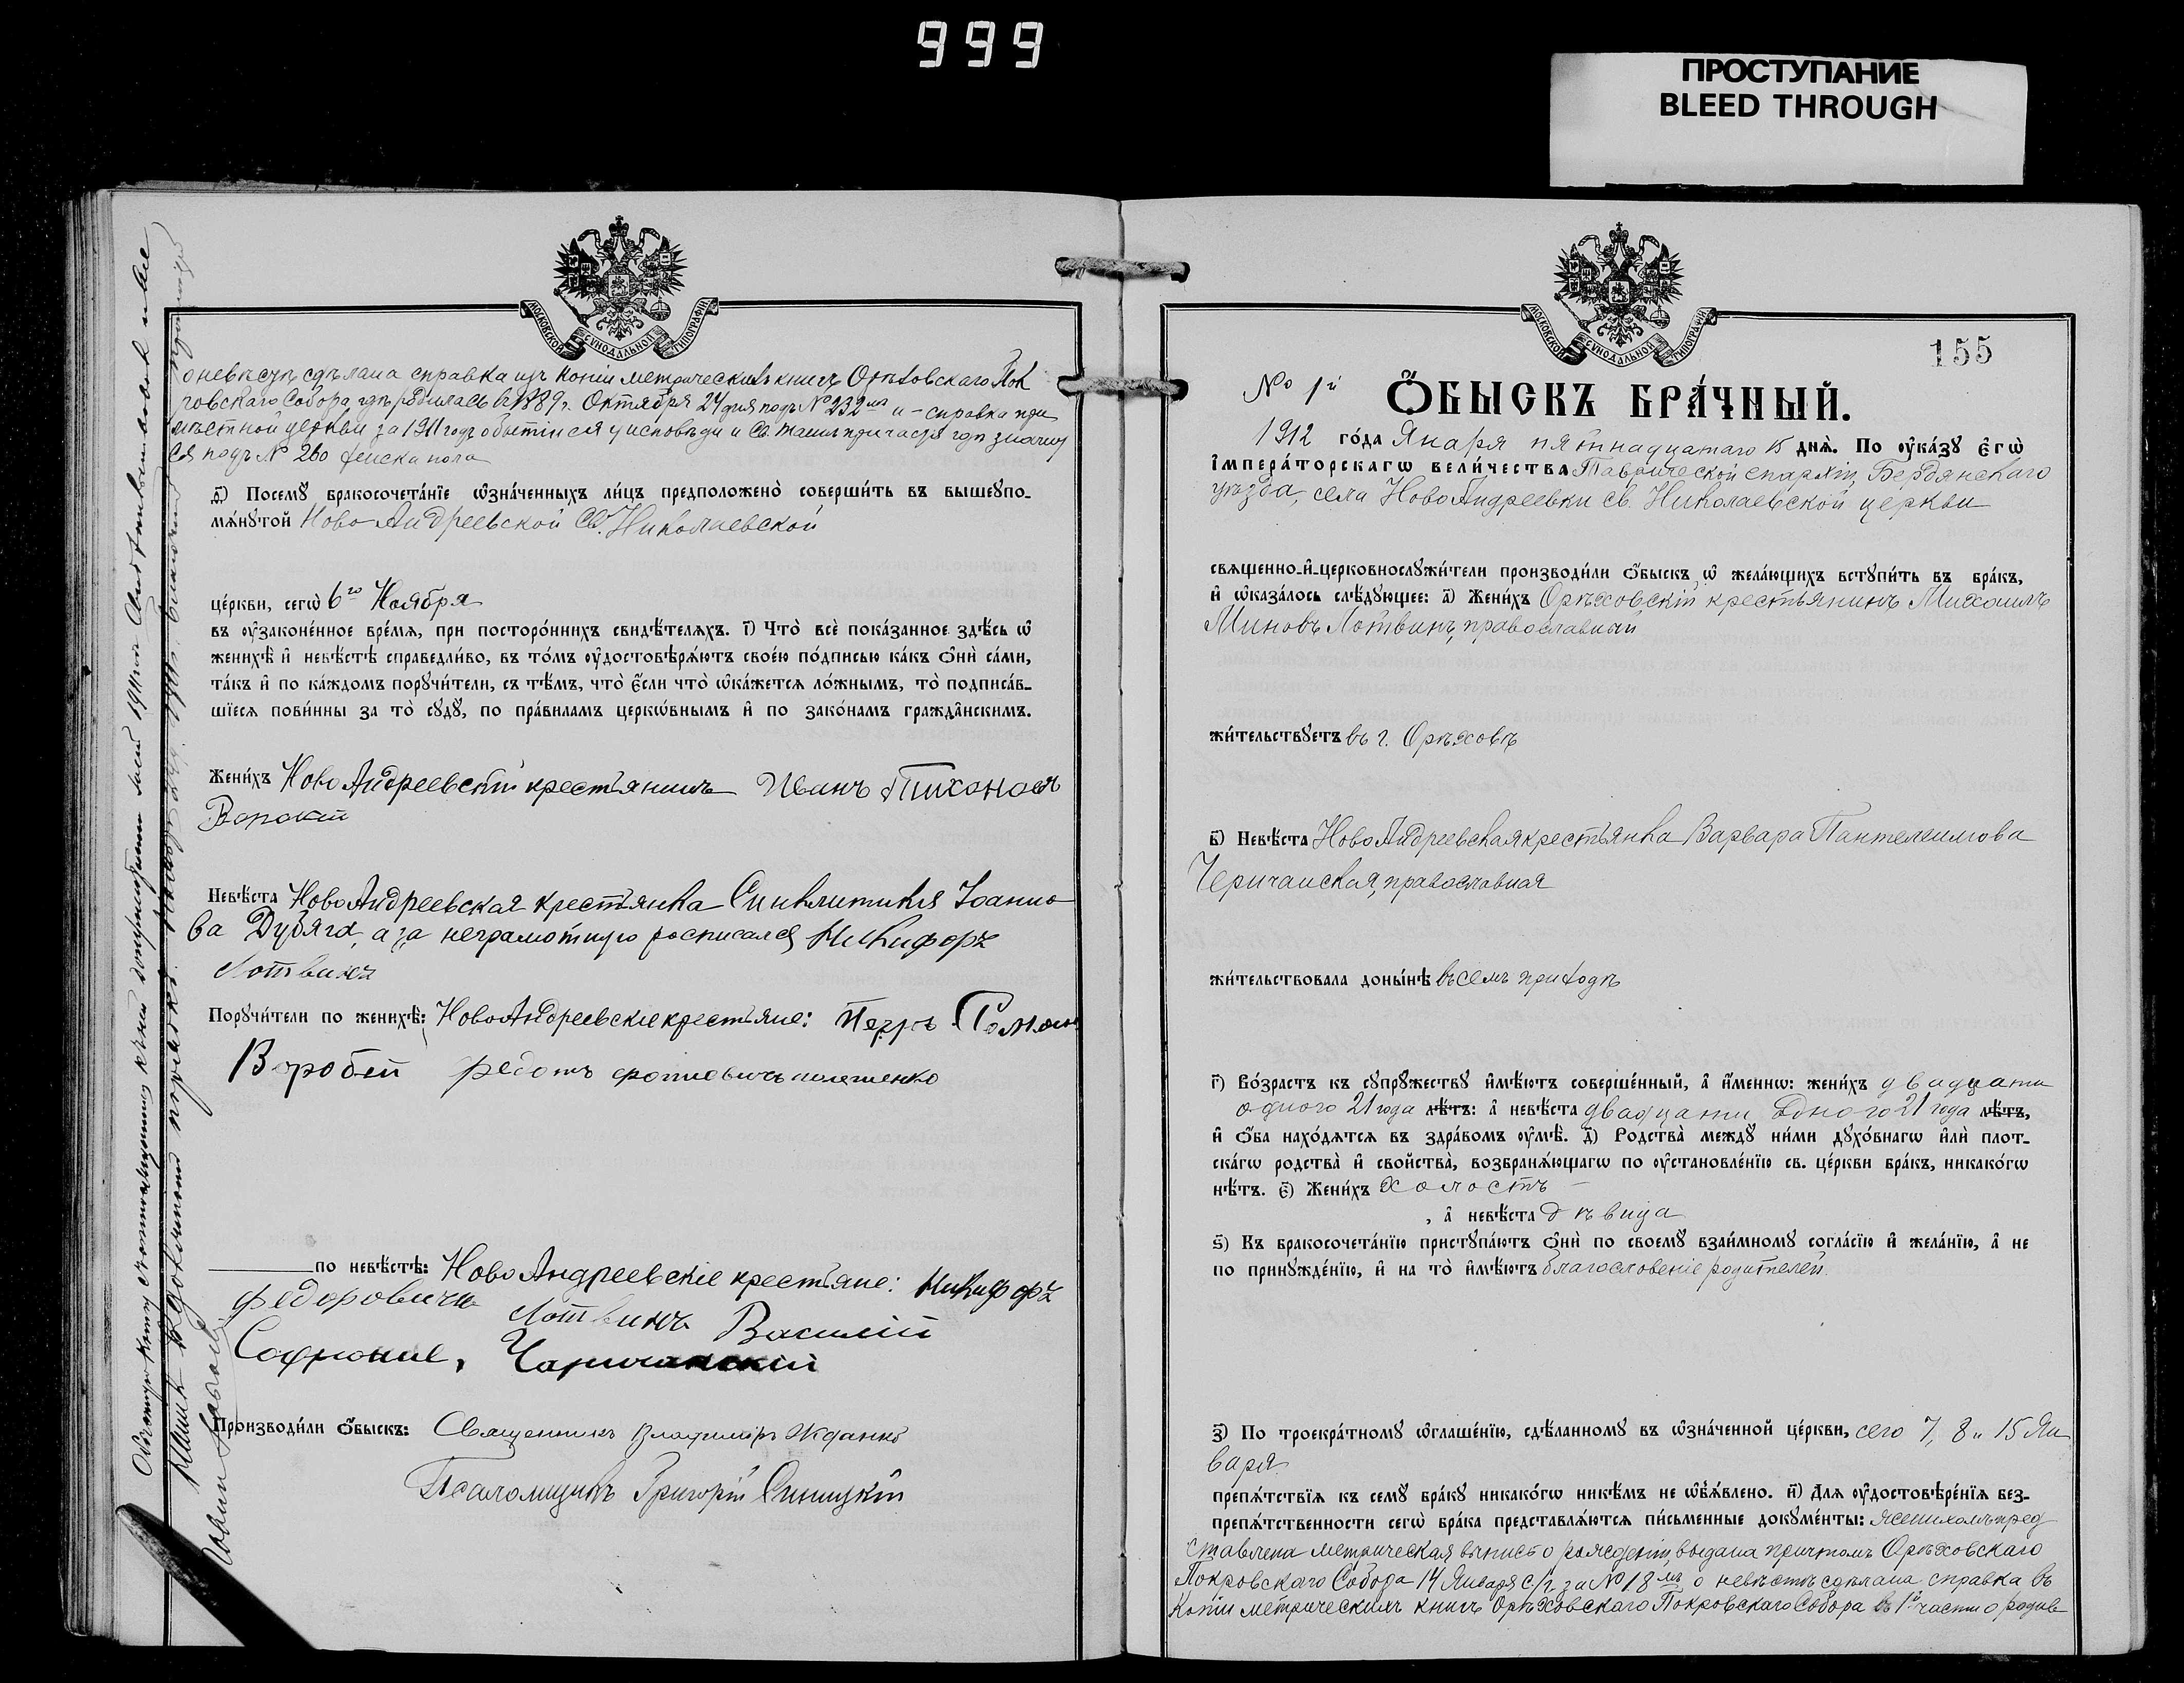 999
ПРОСТУПАНИЕ
BLEED THROUGH
МОСКОВСКОЙ СУНОДАЛЬНОЙ ТИПОГРАФІИ
о невѣстѣ сдѣлана справка изъ копіи метрическихъ книгъ Орѣховскаго Пок
ровскаго Собора гдѣ родилась въ 1889 г. Октября 24 дня подъ № 232 и – справка при
мѣстной церкви за 1911 годъ о бытіи ея у исповѣди и Св. таинъ причастія гдѣ значит
ся подъ № 260 женска пола
д҃) Посемꙋ бракосочета́нїе ѡ҆зна́ченныхъ ли́цъ предположено̀ соверши́ть въ вышеꙋпо-
мѧ́нꙋтой Ново Андреевской Св. Николаевской
це́ркви, сегѡ̀ 6го Ноября
въ ᲂу҆законе́нное вре́мѧ, при посторо́ннихъ свидѣ́телѧхъ. і҃) Что̀ всѐ пока́занное здѣ́сь ѡ҆
женихѣ̀ и҆ невѣ́стѣ справедли́во, въ то́мъ ᲂу҆достовѣрѧ́ютъ свое́ю по́дписью ка́къ ѻ҆нѝ са́ми,
та́къ и҆ по ка́ждомъ порꙋчи́тели, съ тѣ́мъ, что̀ є҆́сли что̀ ѡ҆ка́жетсѧ ло́жнымъ, то̀ подписа́в-
шїесѧ пови́нны за то̀ сꙋдꙋ̀, по пра́виламъ церкѡ́внымъ и҆ по зако́намъ гражда̂нскимъ.
Жени́хъ Ново Андреевскій крестьянинъ Иванъ Тихонов
Невѣ́ста Ново Андреевская крестьянка Синклитикія Іоанно
ва Дубяга, а за неграмотную росписался Никифоръ
Лотвинъ
Порꙋчи́тели по женихѣ̀: Ново Андреевскіе крестьяне: Петръ
Воробей Федотъ
по невѣ́стѣ: Ново Андреевскіе крестьяне: Никифоръ
Федоровичъ Лотвинъ Василій
Софроніе, Чаричанскій
Производи́ли ѻ҆́быскъ: Священникъ Владиміръ Жданко
Псаломщикъ Григорій Синицкій
МОСКОВСКОЙ СУНОДАЛЬНОЙ ТИПОГРАФІИ
155
№ 1й
Ѻ҆́БЫСКЪ БРА́ЧНЫЙ.
1912 го́да Января пятнадцатаго 15 днѧ̀. По ᲂу҆ка́зꙋ є҆гѡ̀
і҆мпера́торскагѡ вели́чества Таврической епархіи, Бердянскаго
уѣзда, села Ново Андреевки Св. Николаевской церкви
свѧщенно-и҆-церковнослꙋжи́тели производи́ли ѻ҆́быскъ ѡ҆ жела́ющихъ встꙋпи́ть въ бра́къ,
и҆ ѡ҆каза́лось слѣ́дꙋющее: а҃) Жени́хъ Орѣховскій крестьянинъ Михаилъ
Миновъ Лотвинъ, православный
жи́тельствꙋетъ въ г. Орѣховѣ
в҃) Невѣ́ста Ново Андреевская крестьянка Варвара Пантелеимова
Черичанская, православная
жи́тельствовала доны́нѣ въ семъ приходѣ
г҃) Во́зрастъ къ сꙋпрꙋ́жествꙋ и҆мѣ́ютъ соверше́нный, а҆ и҆́меннѡ: жени́хъ двадцати
одного 21 года лѣ́тъ: а҆ невѣ́ста двадцати одного 21 года лѣ́тъ,
и҆ ѻ҆́ба нахо́дѧтсѧ въ здра́вомъ ᲂу҆мѣ̀. д҃) Родства̀ междꙋ̀ ни́ми дꙋхо́внагѡ и҆лѝ плот-
ска́гѡ родства̀ и҆ сво́йства̀, возбранѧ́ющагѡ по ᲂу҆становле́нїю св. це́ркви бра́къ, никако́гѡ
нѣ́тъ. є҃) Жени́хъ холостъ –
, а҆ невѣ́ста дѣвица
ѕ҃) Къ бракосочета́нїю пристꙋпа́ютъ ѻ҆нѝ по своемꙋ̀ взаи́мномꙋ согла́сїю и҆ жела́нїю, а҆ не
по принꙋжде́нїю, и҆ на то̀ и҆мѣ́ютъ благословеніе родителей.
з҃) По троекра́тномꙋ ѡ҆глаше́нїю, сдѣ́ланномꙋ въ ѡ҆зна́ченной це́ркви, сего 7, 8 и 15 Ян
варя
препѧ́тствїѧ къ семꙋ̀ бра́кꙋ никако́гѡ никѣ́мъ не ѡ҆б̾ѧ́влено. и҃) Длѧ ᲂу҆достовѣре́нїѧ без-
препѧ́тственности сегѡ̀ бра́ка представлѧ́ютсѧ пи́сьменные докꙋме́нты: женихомъ пред
ставлена метрическая выпись о рожденіи, выдана причтомъ Орѣховскаго
Покровскаго Собора 14 Января с/г. за № 18мъ о невѣстѣ сдѣлана справка въ
копіи метрическихъ книгъ Орѣховскаго Покровскаго Собора въ 1й части о родив